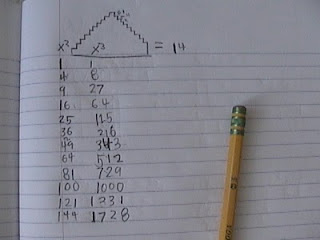 = 14
x² x³
1 1
4 8
9 27
16 64
25 125
36 216
49 343
64 512
81 729
100 1000
121 1331
144 1728